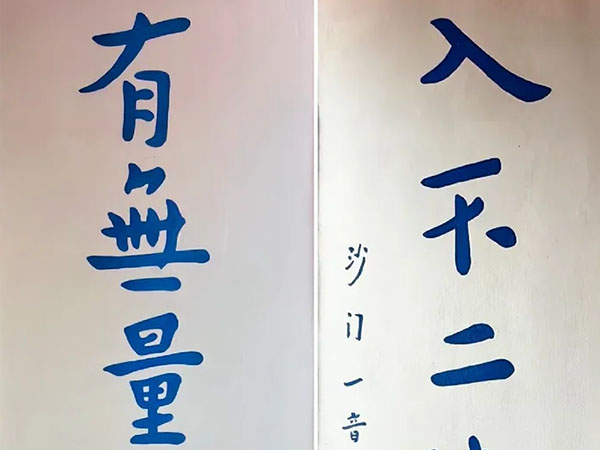 有無量
入不二
沙门一音